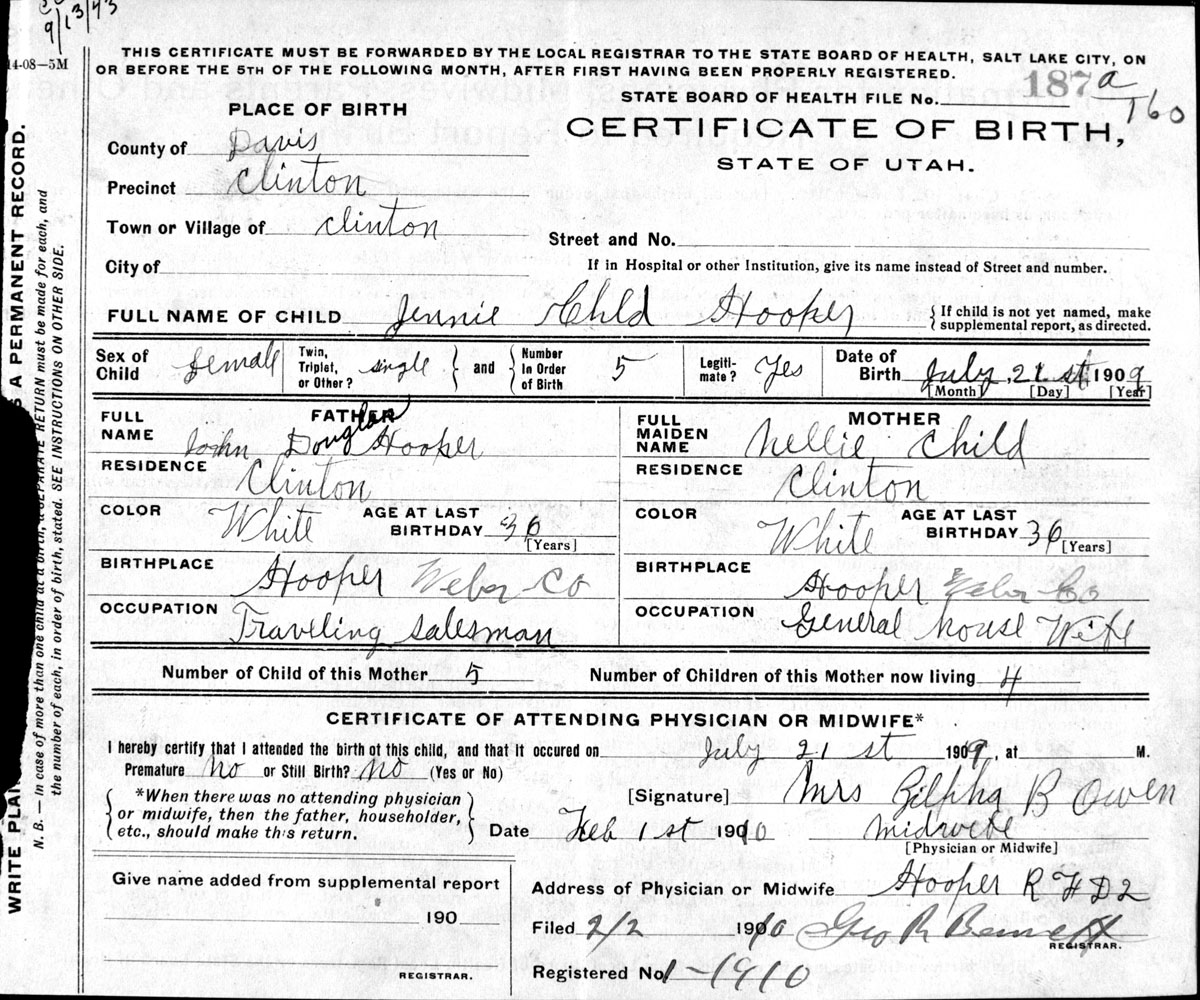 9/13/43
14-08—5M
THIS CERTIFICATE MUST BE FORWARDED BY THE LOCAL REGISTRAR TO THE STATE BOARD OF HEALTH, SALT LAKE CITY, ON
OR BEFORE THE 5TH OF THE FOLLOWING MONTH, AFTER FIRST HAVING BEEN PROPERLY REGISTERED.
STATE BOARD OF HEALTH FILE No. 187a
160
PLACE OF BIRTH
CERTIFICATE OF BIRTH,
STATE OF UTAH.
County of Davis
Precinct Clinton
Town or Village of Clinton
Street and No.
City of
If in Hospital or other Institution, give its name instead of Street and number.
FULL NAME OF CHILD Jennie Chld Hooper { If child is not yet named, make supplemental report, as directed.
Sex of Child Female Twin, Triplet, or Other? single } and { Number In Order of Birth 5 Legiti-mate? Yes Date of Birth July 21 st 1909
[Month] [Day] [Year]
FATHER
FULL NAME John Douglas Hooper
RESIDENCE Clinton
COLOR White AGE AT LAST BIRTHDAY 36 [Years]
BIRTHPLACE Hooper Weber Co
OCCUPATION Traveling Salesman
MOTHER
FULL MAIDEN NAME Nellie Child
RESIDENCE Clinton
COLOR White AGE AT LAST BIRTHDAY 36 [Years]
BIRTHPLACE Hooper Weber Co
OCCUPATION General House Wife
Number of Child of this Mother 5 Number of Children of this Mother now living 4
CERTIFICATE OF ATTENDING PHYSICIAN OR MIDWIFE*
I hereby certify that I attended the birth of this child, and that it occured on July 21 st 1909, at M.
Premature No or Still Birth? No (Yes or No)
*When there was no attending physician
or midwife, then the father, householder,
etc., should make this return.
[Signature] Mrs Zilpha B Owen
Date Feb 1st 1910 midwife
[Physician or Midwife]
Give name added from supplemental report
190
REGISTRAR.
Address of Physician or Midwife Hooper R F D 2
Filed 2/2 1910 Geo R Bennett
REGISTRAR.
Registered No. 1-1910
WRITE PLAIN
S A PERMANENT RECORD.
N. B. — In case of more than one child at a birth, a SEPARATE RETURN must be made for each, and
the number of each, in order of birth, stated. SEE INSTRUCTIONS ON OTHER SIDE.